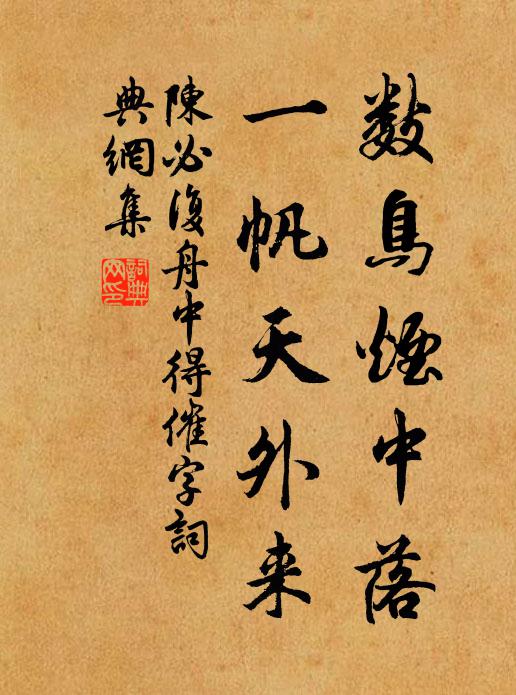 数鳥煙中落
一帆天外来
陳必復舟中得催字詞
典網集
詞典网印